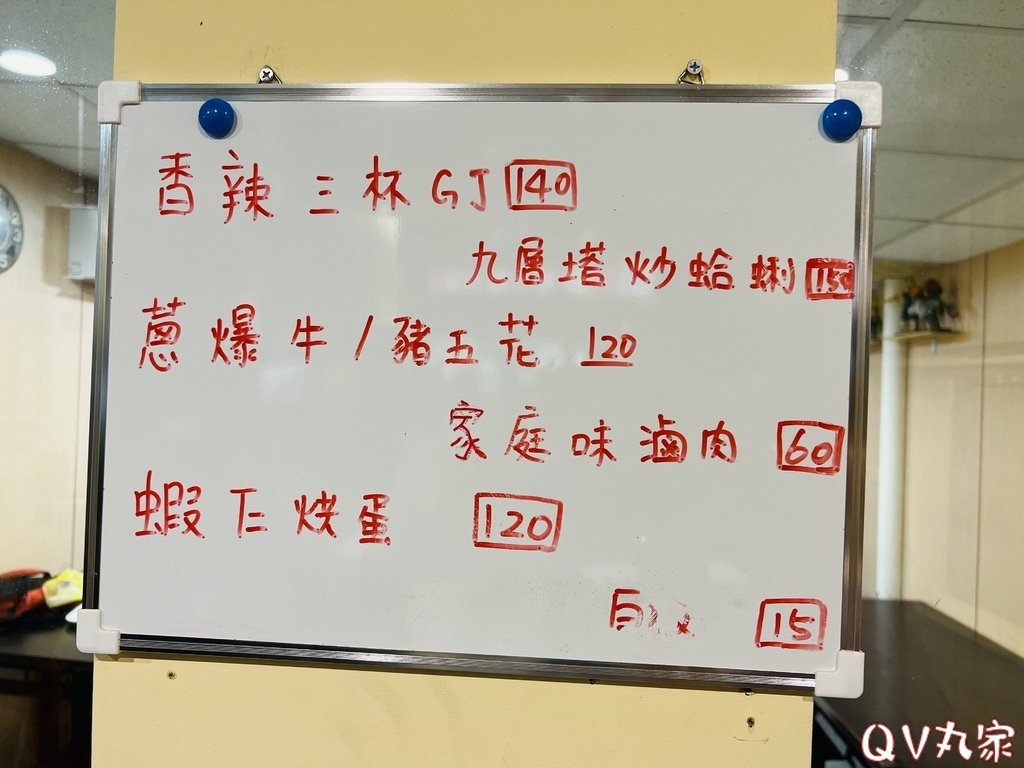 香辣三杯GJ 140
九層塔炒蛤蜊 150
蔥爆牛/豬五花 120
家庭味滷肉 60
蝦仁烘蛋 120
白 15
QV丸家